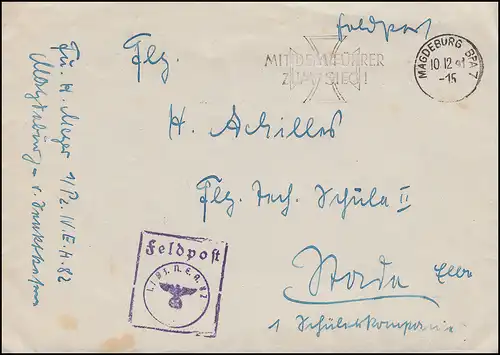 Feldpost
MIT DEM FÜHRER
ZUM SIEG!
MAGDEBURG BPA 7
10.12.41
-15
Flg.
H. Achilles
Flg. Tech. Schule II
Stade Elbe
1 Schülerkompanie
Feldpost
H. Meyer 1/Pz. N. E. A. 82
Magdeburg